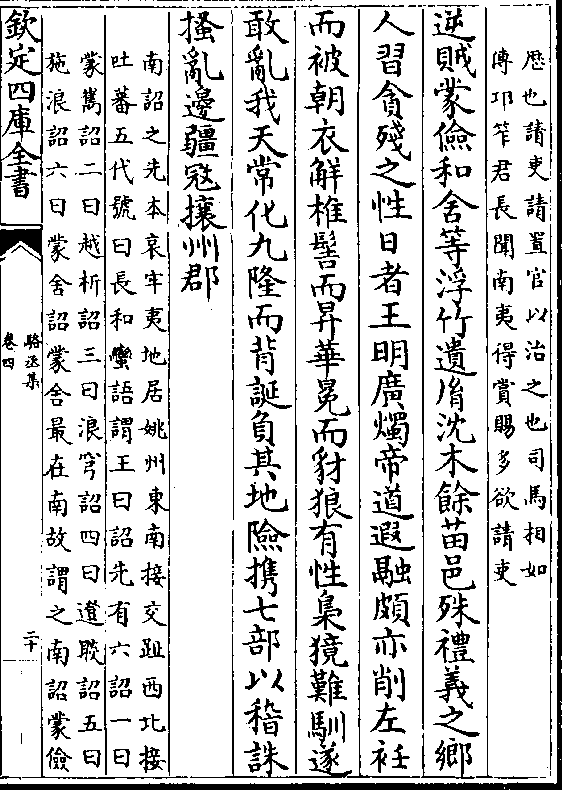 厯也請吏請置官以治之也司馬相如
傳邛笮君長聞南夷得賞賜多欲請吏
逆賊蒙儉和舍等浮竹遺𦙍沈木餘苗邑殊禮義之鄉
人習貪殘之性日者王明廣燭帝道遐融頗亦削左衽
而被朝衣解椎髻而昇華冕而豺狼有性梟獍難馴遂
敢亂我天常化九隆而背誕負其地險攜七部以稽誅
搔亂邊疆冦攘州郡
南詔之先本哀牢夷地居姚州東南接交趾西北接
吐蕃五代號曰長和蠻語謂王曰詔先有六詔一曰
蒙嶲詔二曰越析詔三曰浪穹詔四曰邆賧詔五曰
施浪詔六曰蒙舍詔蒙舍最在南故謂之南詔蒙儉
欽定四庫全書
駱丞集
卷四
二十